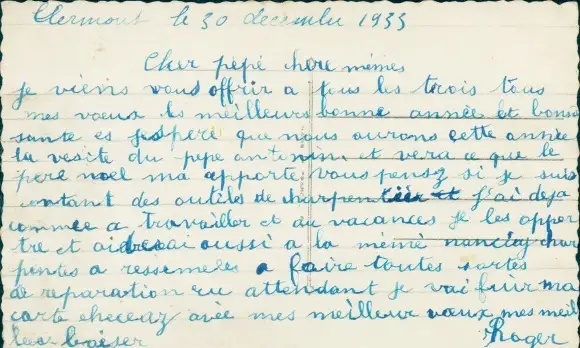 Clermont le 30 decembre 1933
Cher pépé chere mémés
je viens vous offrir a tous les trois tous
mes vœux les meilleurs bonne année et bonne
sante et jespere que nous aurons cette année
la vesite du pepe antenin et vera ce que le
pere noel ma apporte vous pensez si je suis
contant des outils de charpentier et j'ai deja
commce a travailler et au vacances je les appor
tre et aiderai aussi a la mémé nancicy char
pintes a ressemeles a faire toutes sortes
de reparation en attendant je vai finir ma
carte avec mes meilleur vœux mes meil
leur baiser
Roger